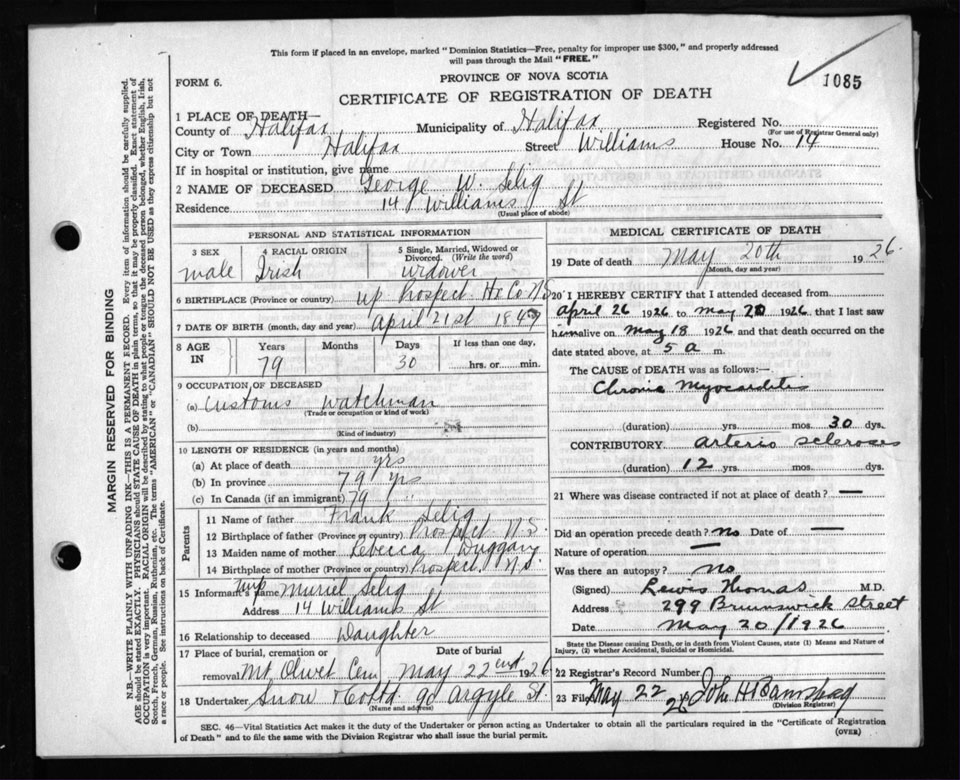 This form if placed in an envelope, marked "Dominion Statistics—Free, penalty for improper use $300," and properly addressed
will pass through the Mail "FREE."
FORM 6.
PROVINCE OF NOVA SCOTIA
1085
CERTIFICATE OF REGISTRATION OF DEATH
MARGIN RESERVED FOR BINDING
N.B.—WRITE PLAINLY WITH UNFADING INK—THIS IS A PERMANENT RECORD. Every item of information should be carefully supplied.
AGE should be stated EXACTLY. PHYSICIANS should STATE CAUSE OF DEATH in plain terms, so that it may be properly classified. Exact statement of
OCCUPATION is very important. RACIAL ORIGIN will be described by stating to what people or tongue the deceased person belonged, whether English, Irish,
Scotch, French, German, Russian, Ruthenian, etc. The terms "AMERICAN" or "CANADIAN" SHOULD NOT BE USED as they express citizenship but not
a race or people. See instructions on back of Certificate.
1 PLACE OF DEATH—
County of Halifax Municipality of Halifax Registered No.
(For use of Registrar General only)
City or Town Halifax Street Williams House No. 14
If in hospital or institution, give name
2 NAME OF DECEASED George W. Selig
Residence 14 Williams St
(Usual place of abode)
PERSONAL AND STATISTICAL INFORMATION
3 SEX male
4 RACIAL ORIGIN Irish
5 Single, Married, Widowed or
Divorced. (Write the word)
widower
6 BIRTHPLACE (Province or country) up Prospect Hx Co N.S
7 DATE OF BIRTH (month, day and year) April 21st 1847
8 AGE IN
Years 79 Months Days 30
If less than one day,
hrs. or min.
9 OCCUPATION OF DECEASED
(a) Customs Watchman
(Trade or occupation or kind of work)
(b)
(Kind of industry)
10 LENGTH OF RESIDENCE (in years and months)
(a) At place of death yrs
(b) In province 79 yrs
(c) In Canada (if an immigrant) 79 "
Parents
11 Name of father Frank Selig
12 Birthplace of father (Province or country) Prospect N.S.
13 Maiden name of mother Rebecca Duggan
14 Birthplace of mother (Province or country) Prospect, N.S.
15 Informant's name Muriel Selig
Address 14 Williams St
16 Relationship to deceased Daughter
17 Place of burial, cremation or Date of burial
removal Mt. Olivet Cem May 22nd 1926
18 Undertaker Snow & Co Ltd 90 Argyle St.
(Name and address)
MEDICAL CERTIFICATE OF DEATH
19 Date of death May 20th 1926.
(Month, day and year)
20 I HEREBY CERTIFY that I attended deceased from
April 26 1926 to May 20 1926, that I last saw
him alive on May 18 1926 and that death occurred on
date stated above, at 5 a m.
The CAUSE of DEATH was as follows:—
Chronic Myocarditis
(duration) yrs. mos. 30 dys.
CONTRIBUTORY Arterio scleroses
(duration) 12 yrs. mos. dys.
21 Where was disease contracted if not at place of death? —
Did an operation precede death? no Date of —
Nature of operation —
Was there an autopsy? no
(Signed) Lewis Thomas M.D.
Address 299 Brunswick Street
Date May 20/1926
State the Disease causing Death, or in death from Violent Causes, state (1) Means and Nature of
Injury, (2) whether Accidental, Suicidal or Homicidal.
22 Registrar's Record Number
23 Filed May 22 26 John H
(Division Registrar)
SEC. 46—Vital Statistics Act makes it the duty of the Undertaker or person acting as Undertaker to obtain all the particulars required in the "Certificate of Registration
of Death" and to file the same with the Division Registrar who shall issue the burial permit.
(OVER)